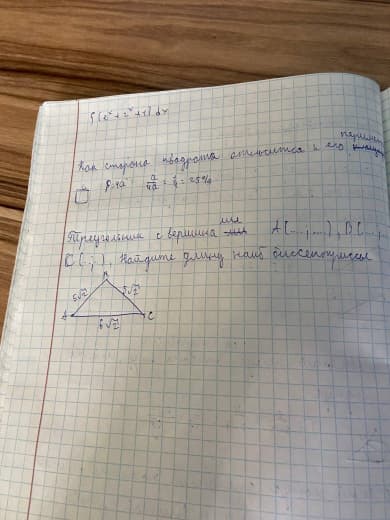 ∫(e^x + 2^x + 1) dx
Как сторона квадрата относится к его
P=4a a/4a = 1/4 = 25%
Треугольник с вершина
ми A(...;...), B(...
C(..;.), Найдите длину наиб биссектрисы
B
5√2 5√2
A C
6√2